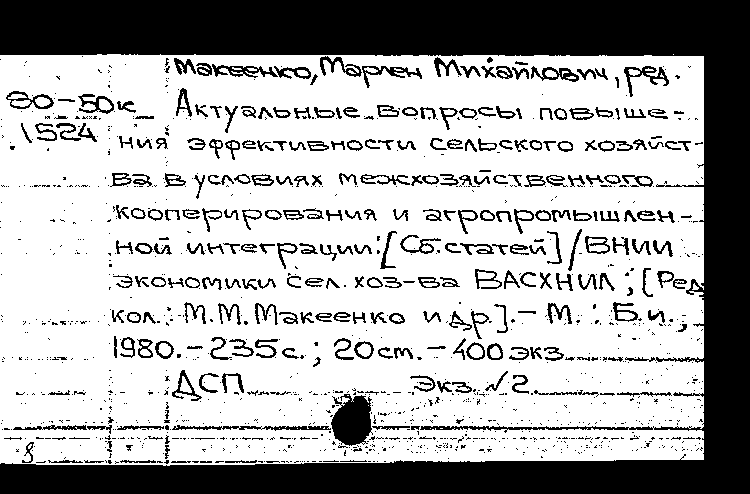 Макеенко, Марлен Михайлович, ред.
80-50к
1524
Актуальные вопросы повыше-
ния эффективности сельского хозяйст-
ва в условиях межхозяйственного
кооперирования и агропромышлен-
ной интеграции: [Сб. статей] / ВНИИ
экономики сел. хоз-ва ВАСХНИЛ; [Ред.
кол.: М.М. Макеенко и др.]. - М. : Б.и.,
1980. - 235 с.; 20 см. - 400 экз.
ДСП Экз. √2.
8